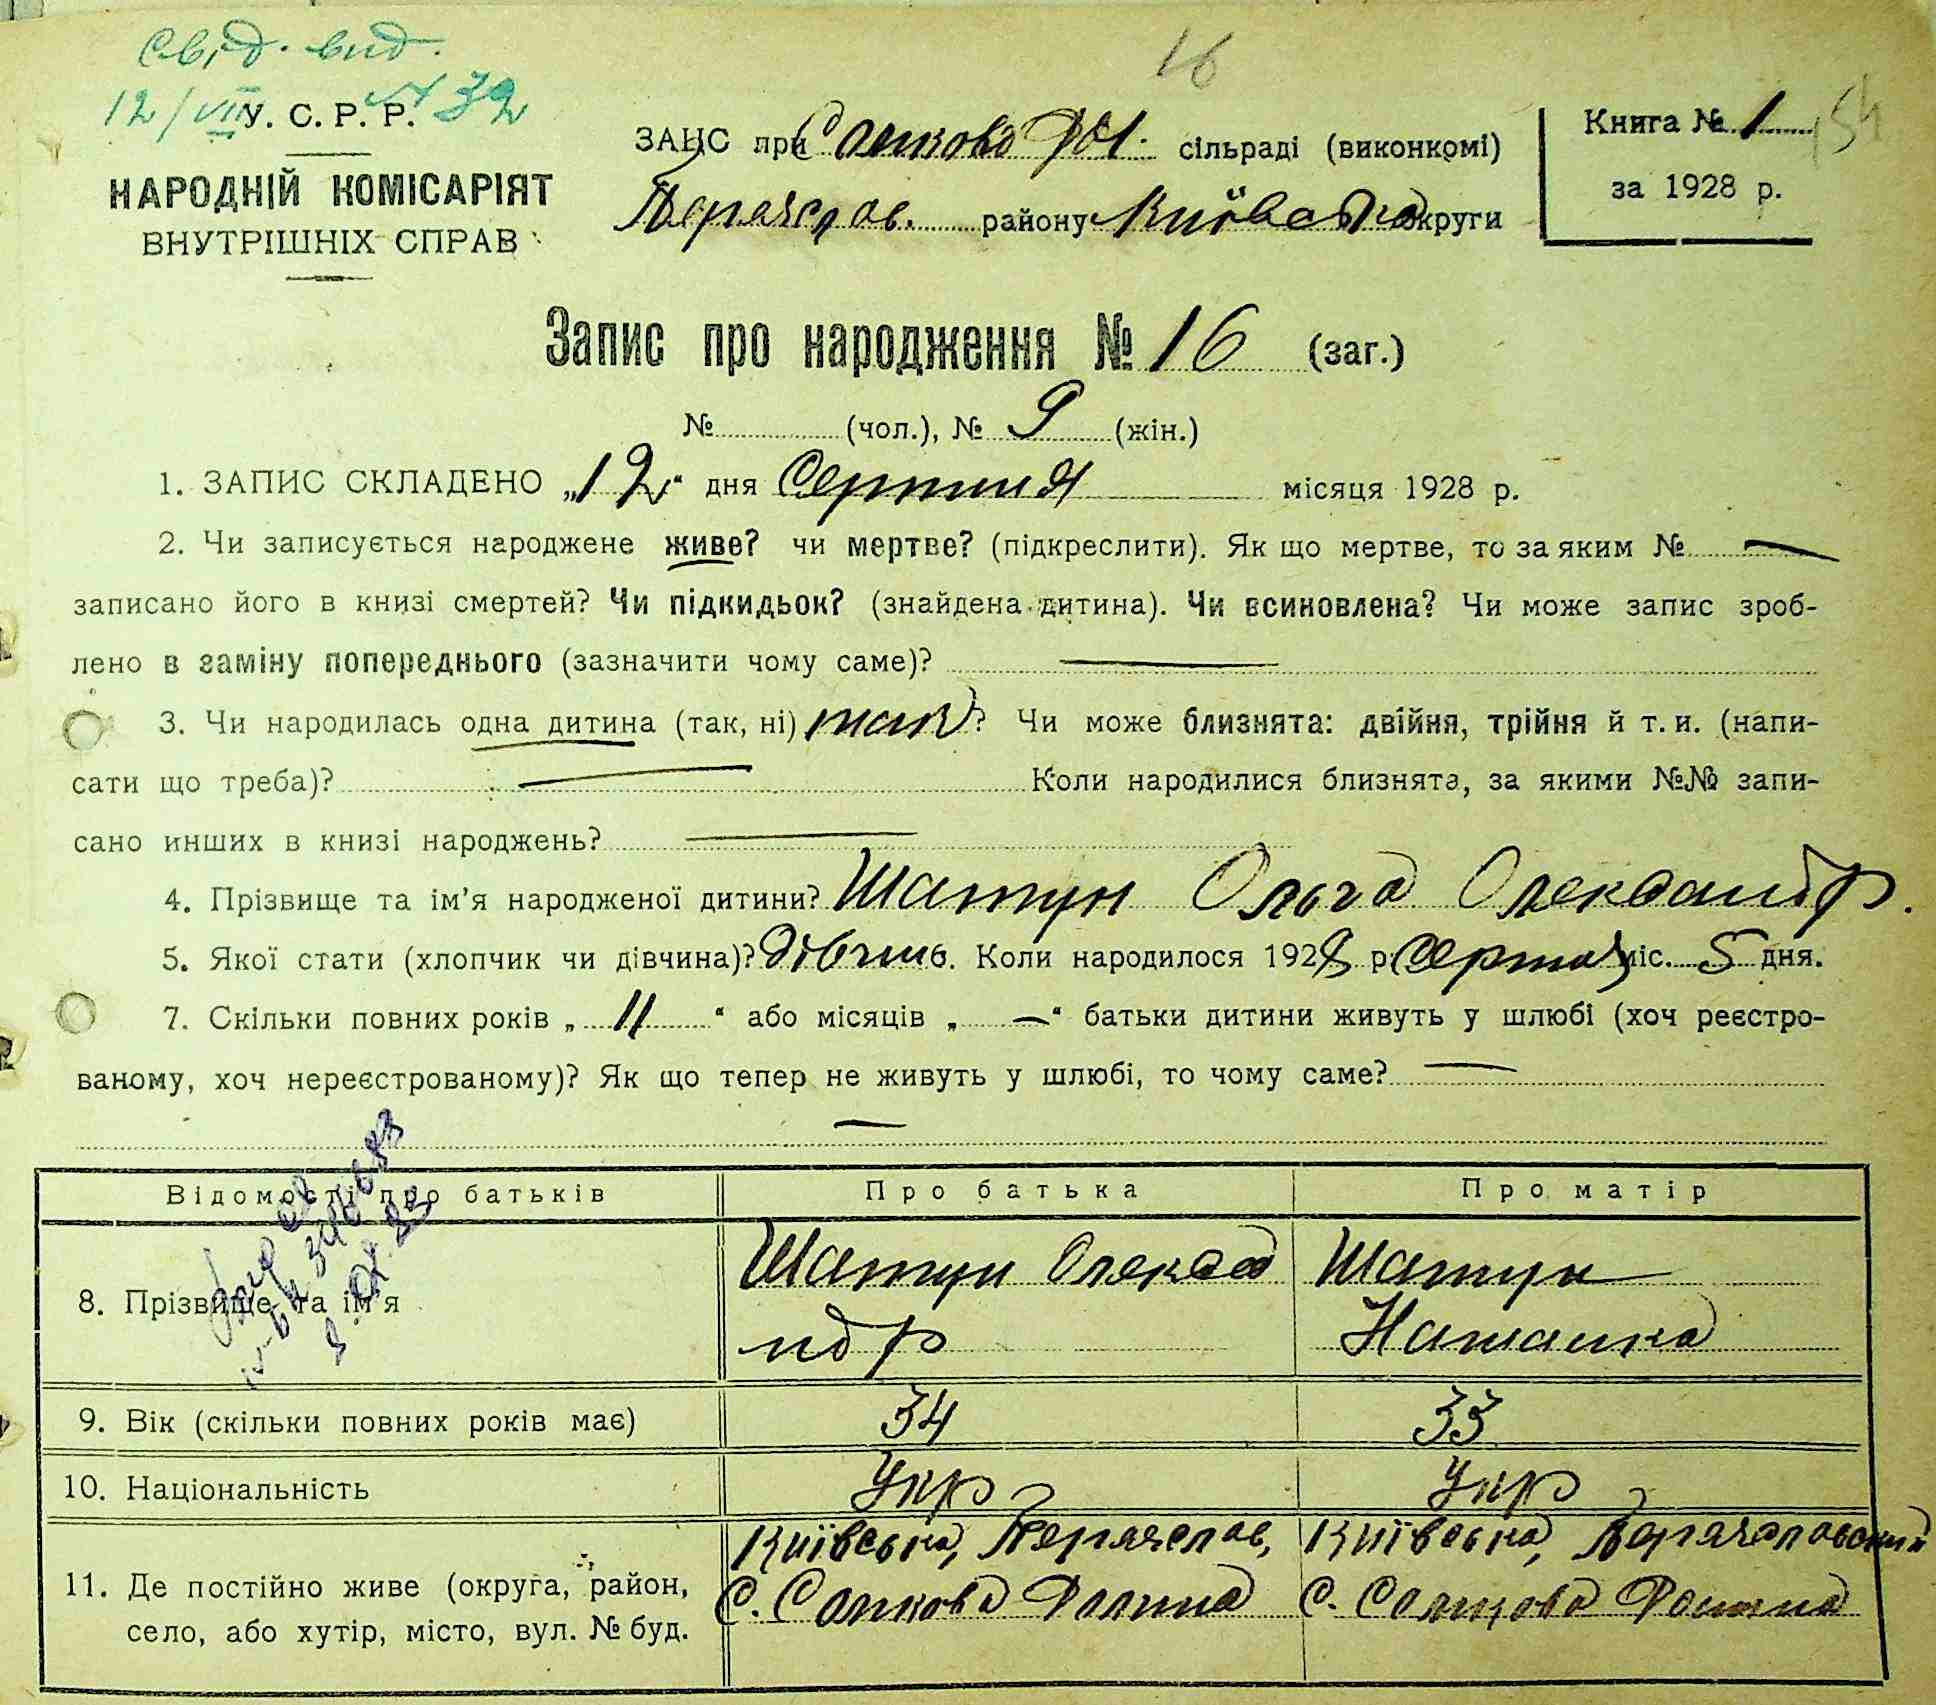 16
Свід. вид.
12/VII № 32
У. С. Р. Р.
НАРОДНІЙ КОМІСАРІЯТ
ВНУТРІШНІХ СПРАВ
ЗАГС при Сомкова Дол. сільраді (виконкомі)
Переяслав. району Київська округи
Книга № 1 154
за 1928 р.
Запис про народження № 16 (заг.)
№ (чол.), № 9 (жін.)
1. ЗАПИС СКЛАДЕНО „12“ дня Серпня місяця 1928 р.
2. Чи записується народжене живе? чи мертве? (підкреслити). Як що мертве, то за яким № —
записано його в книзі смертей? Чи підкидьок? (знайдена дитина). Чи всиновлена? Чи може запис зроб-
лено в заміну попереднього (зазначити чому саме)? —
3. Чи народилась одна дитина (так, ні) так? Чи може близнята: двійня, трійня й т. и. (напи-
сати що треба)? — Коли народилися близнята, за якими №№ запи-
сано инших в книзі народжень? —
4. Прізвище та ім'я народженої дитини? Шатун Ольга Олександр.
5. Якої стати (хлопчик чи дівчина)? Дівчина. Коли народилося 1928 р. Серпня міс. 5 дня.
7. Скільки повних років „ 11 “ або місяців „ — “ батьки дитини живуть у шлюбі (хоч реєстро-
ваному, хоч нереєстрованому)? Як що тепер не живуть у шлюбі, то чому саме? —
—
Відомості про батьків Про батька Про матір
8. Прізвище та ім'я Шатун Олекса Шатун
ндр Наталка
9. Вік (скільки повних років має) 34 33
10. Національність Укр Укр
11. Де постійно живе (округа, район, Київська, Переяслав, Київська, Переяславський
село, або хутір, місто, вул. № буд. С. Сомкова Долина С. Сомкова Долина